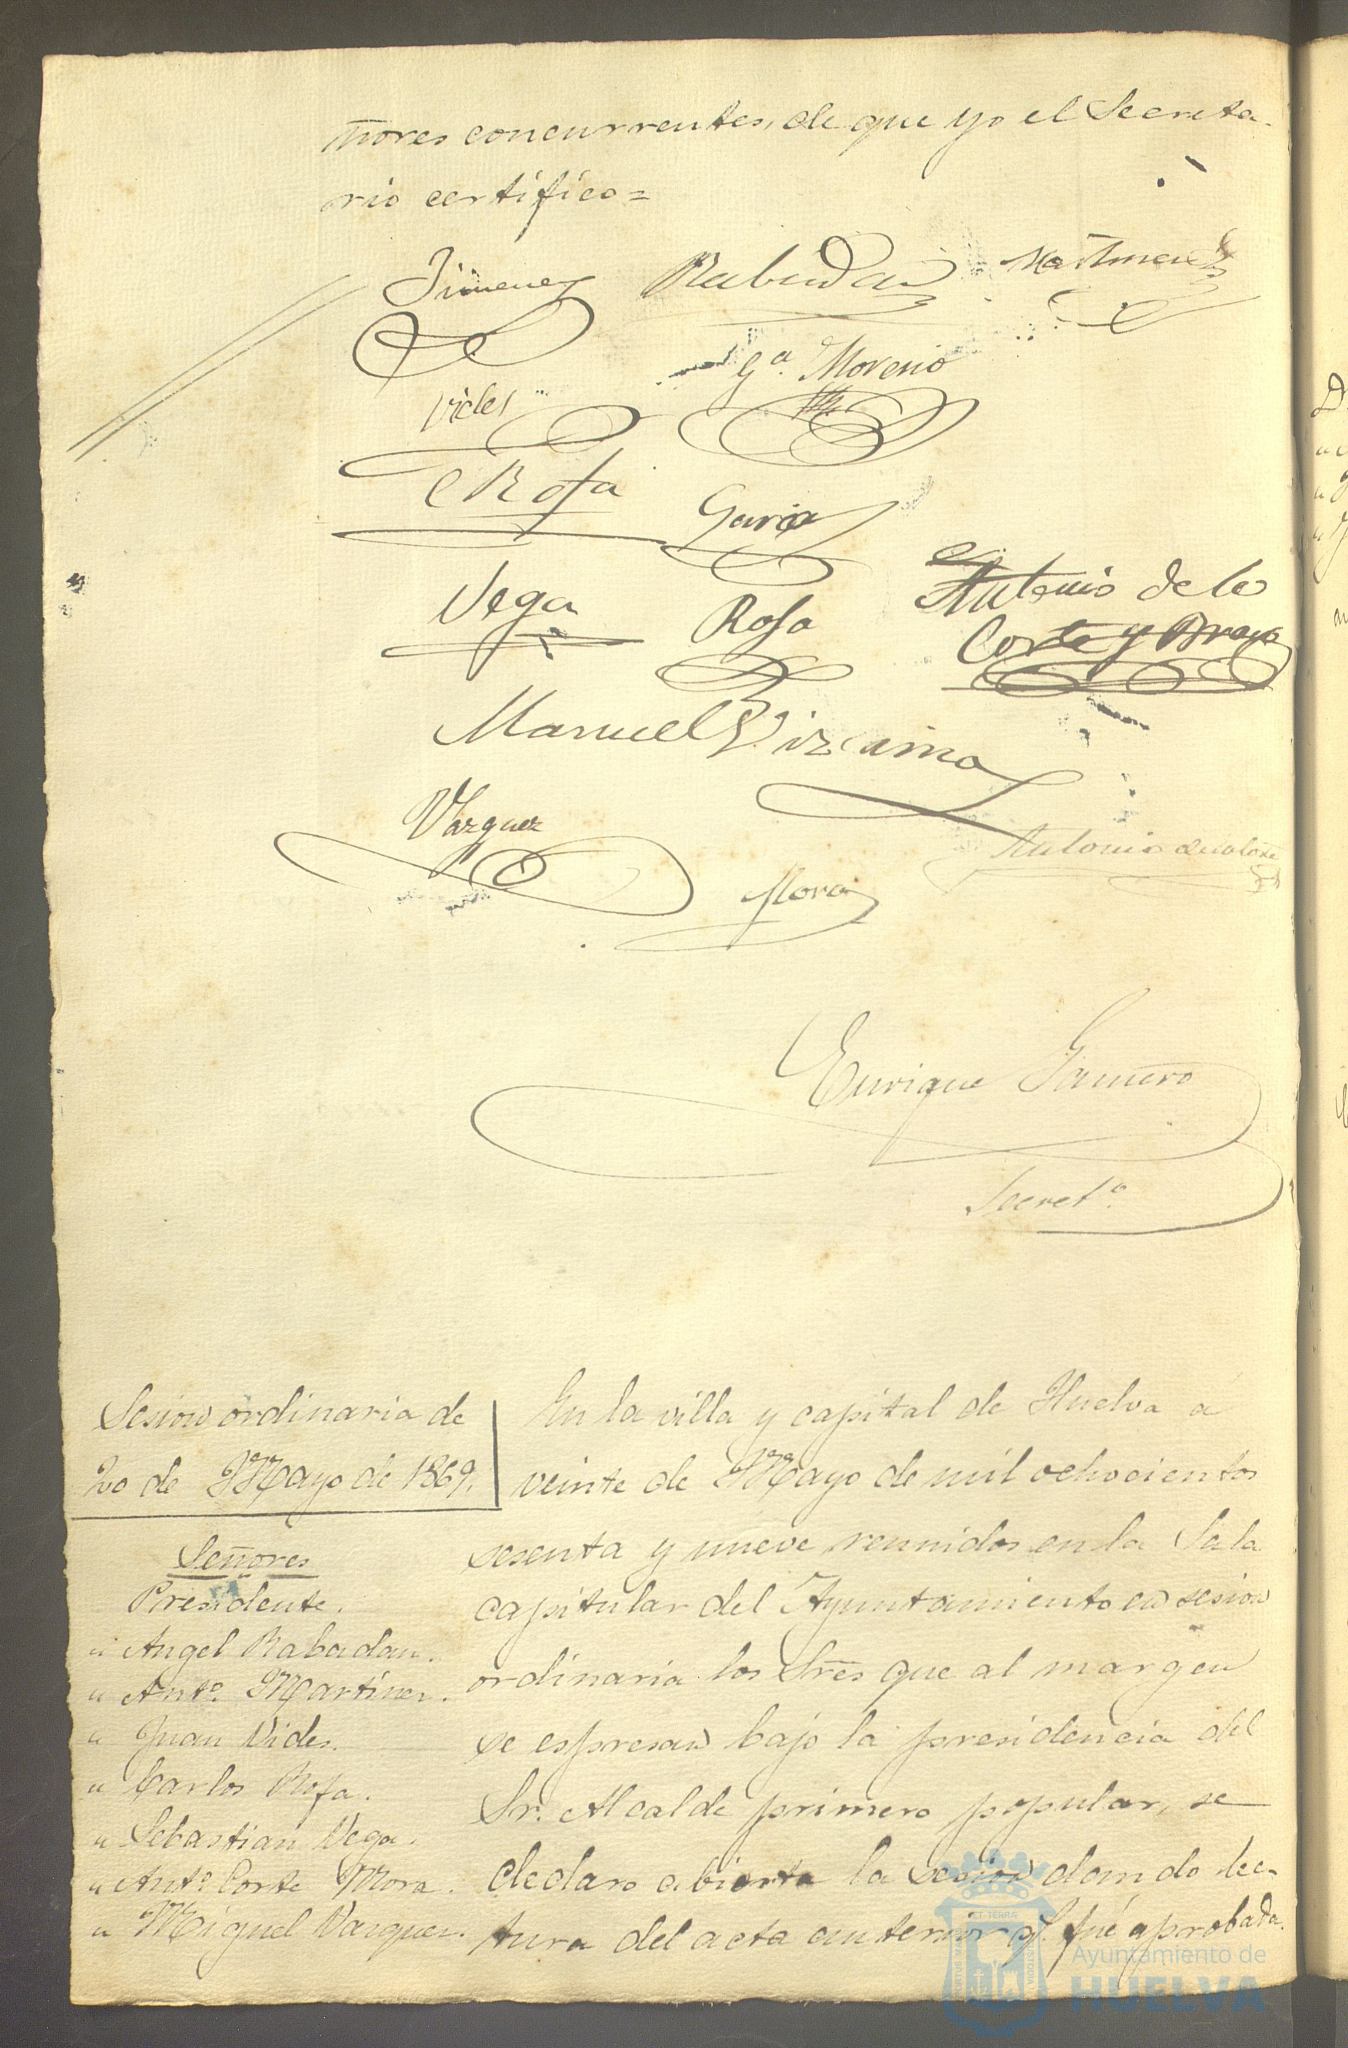 ñores concurrentes, de que yo el Secreta-
rio certifico=
Jimenez Rabadan Martinez
Vides Ga. Moreno
C Rofa Garcia
Vega Rofa Antonio de la
Corte y Bravo
Manuel Vizcaino
Vazquez
Antonio de la Corte
Mora
Enrique Gamero
Secreto.
Sesion ordinaria de
20 de Mayo de 1869.
Señores
Presidente.
" Angel Rabadan.
" Anto. Martinez.
" Juan Vides.
" Carlos Rofa.
" Sebastian Vega.
" Anto. Corte Mora.
" Miguel Vazquez.
En la villa y capital de Huelva á
veinte de Mayo de mil ochocientos
sesenta y nueve reunidos en la Sala
capitular del Ayuntamiento en sesion
ordinaria los Sres que al margen
se espresan bajo la presidencia del
Sr. Alcalde primero popular, se
declaro abierta la sesion dando lec-
tura del acta anterior q. fué aprobada.
Ayuntamiento de
HUELVA